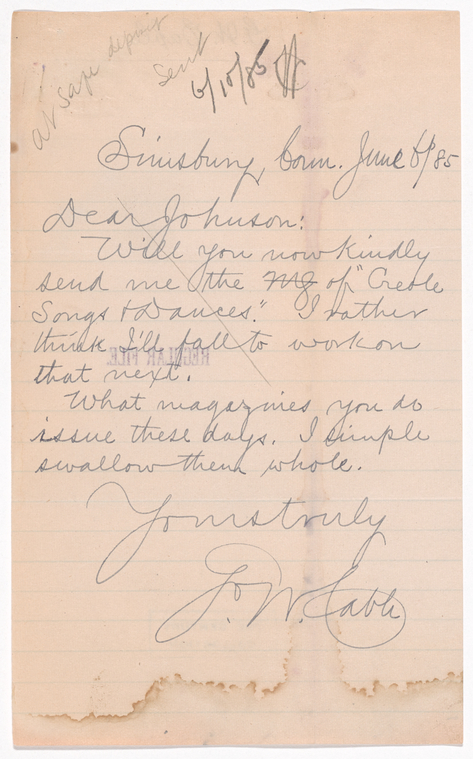 at safe deposit
Sent
6/10/85
Simsbury, Conn. June 6/85
Dear Johnson:
Will you now kindly
send me the MS of "Creole
Songs & Dances." I rather
think I'll fall to work on
that next.
REGULAR FILE
What magazines you do
issue these days. I simple
swallow them whole.
Yours truly
G. W. Cable